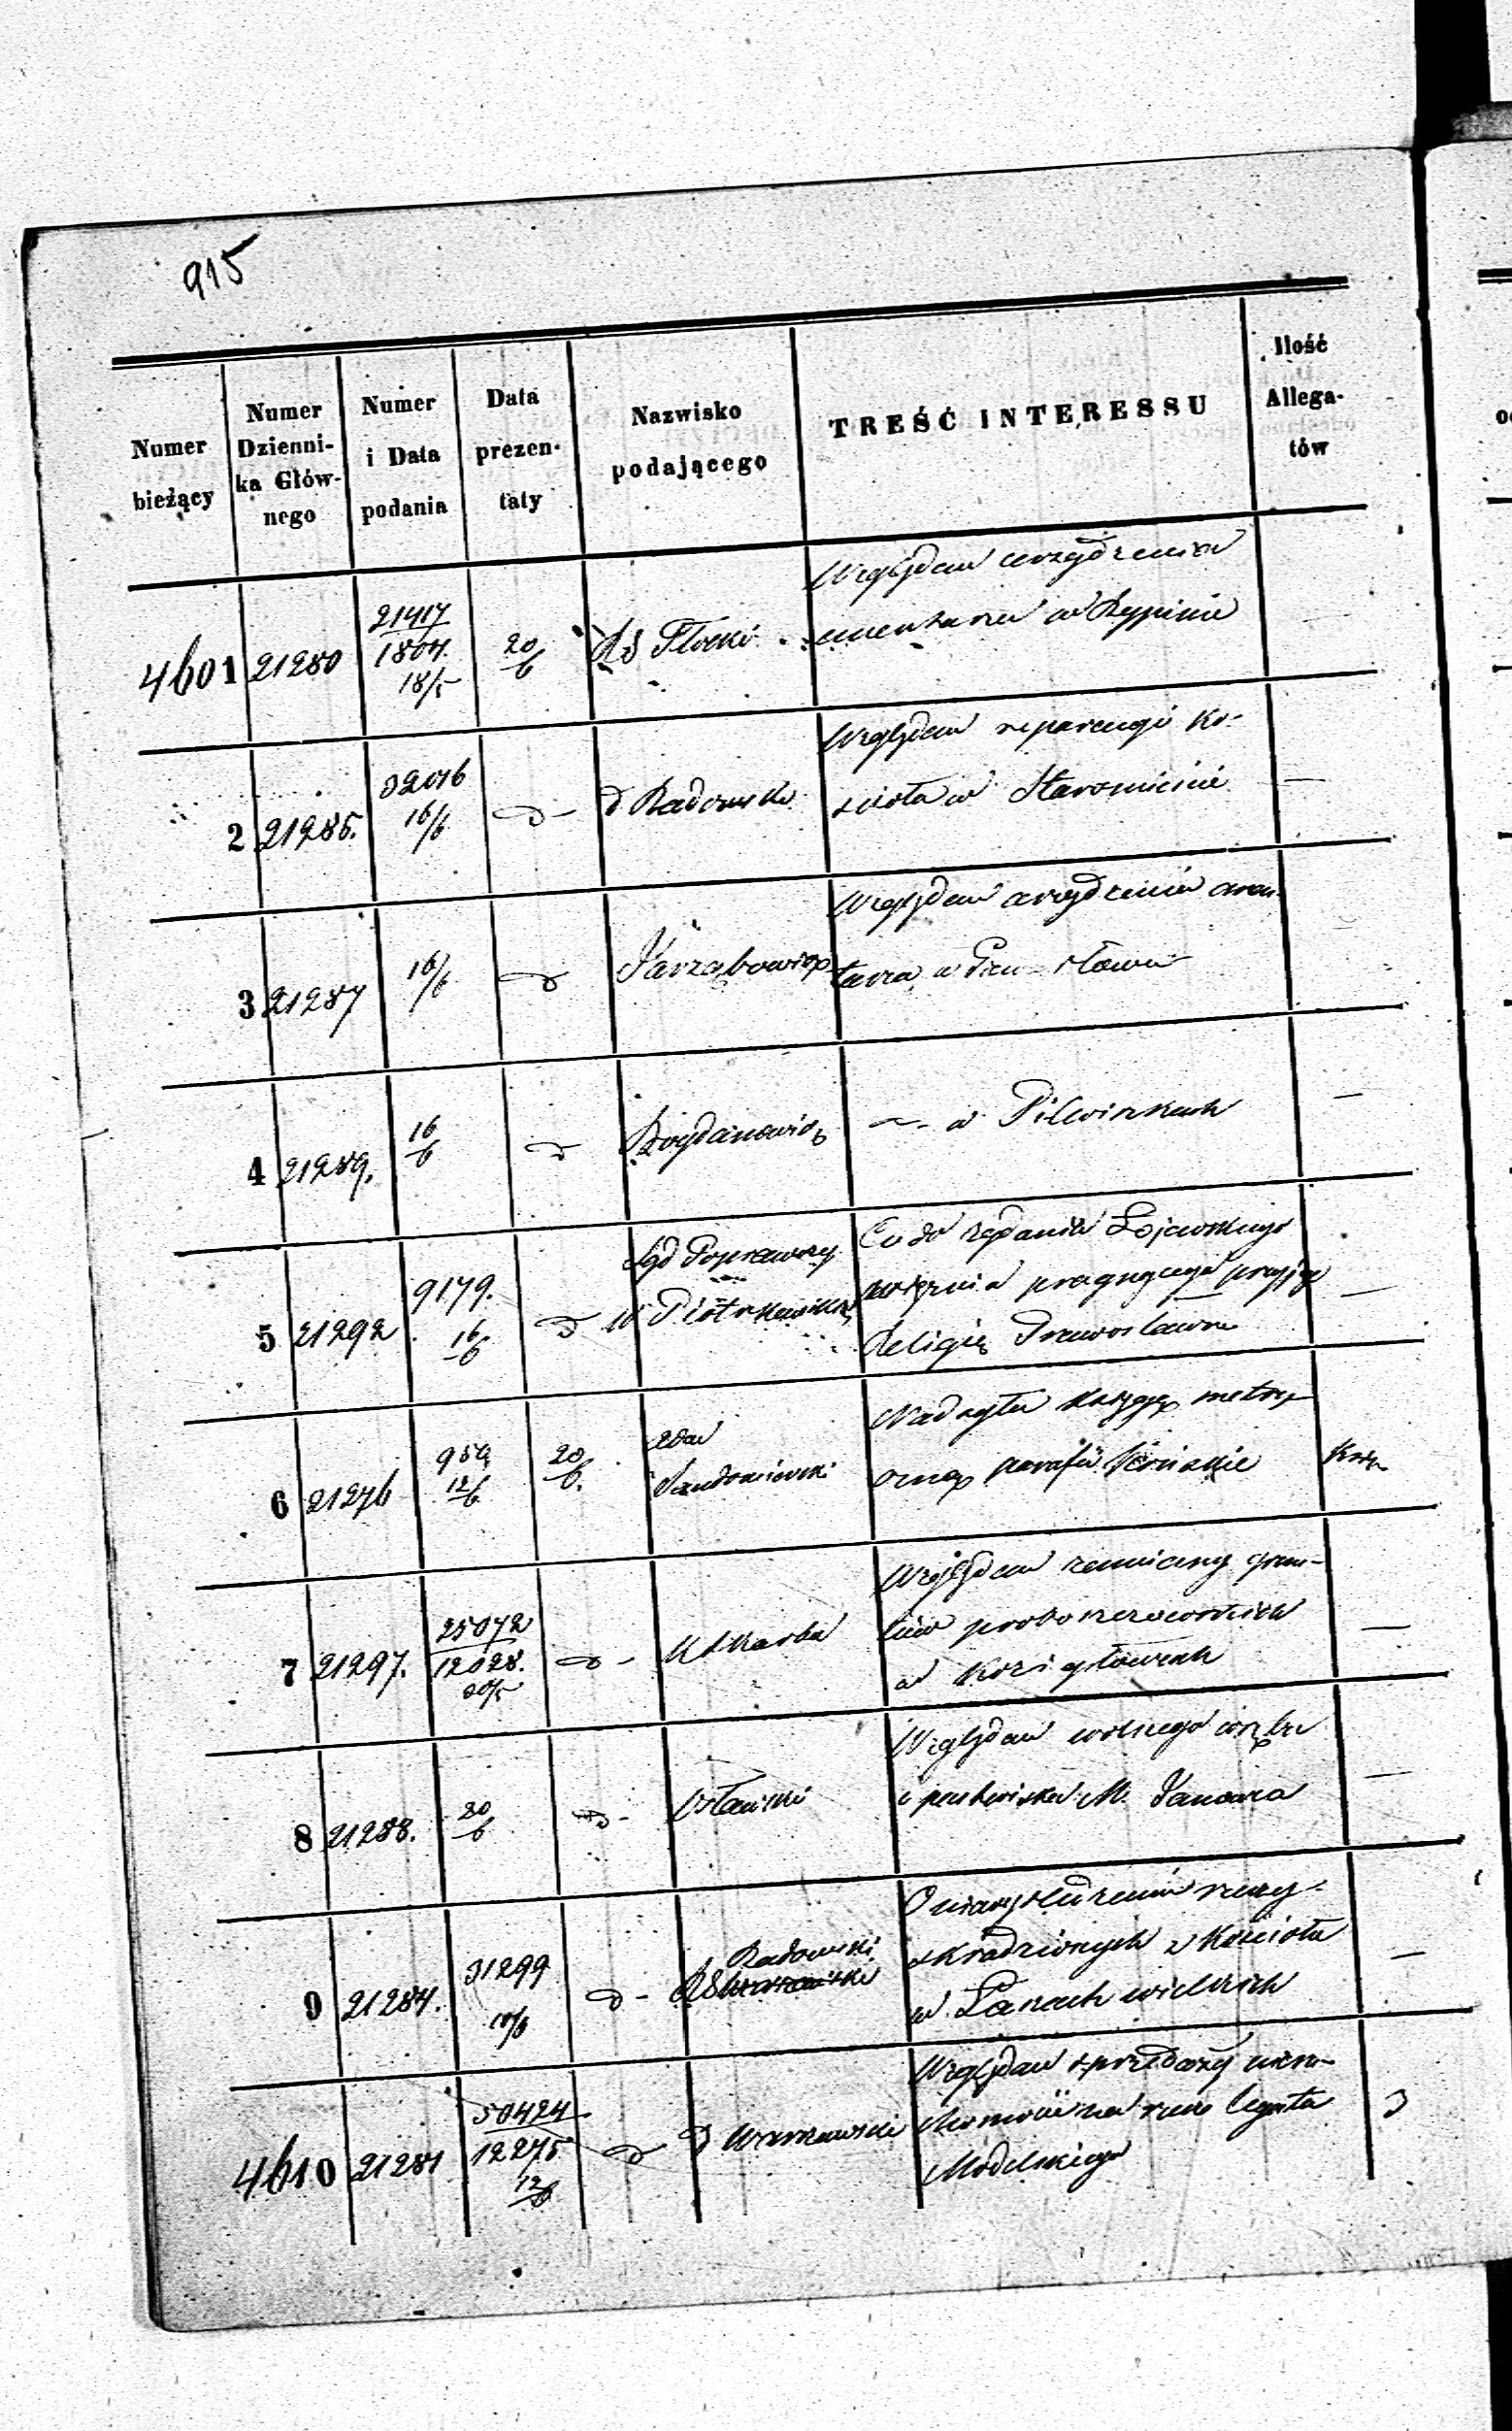 915
Numer bieżący
Numer Dzienni-ka Głów-nego
Numer i Data podania
Data prezen-taty
Nazwisko podającego
TREŚĆ INTERESSU
Ilość Allega-tów
4601 21280 21417 1804. 18/5 20/6 RG Płocki
Względem urządzenia
cmentarza w Rypinie
2 21285. 32016 16/6 d Radomski
Względem reparacyi Ko-
ścioła w Staromieście —
3 21287 16/6
Względem urządzenia cmen-
tarza w
4 21289. 16/6 Bogdanowicz
w Pilwiszkach —
5 21292 9179. 16/6 Sąd Poprawczy
w Piotrkowski
Co do żądania Łojewskiego
więznia pragnącego przyjąć —
Religię Prawosławną
6 21276 959 12/6 20/6. Sandomierski
Nadsyła księgę metry-
czną parafii
7 21297. 25072 12028. 20/5
Względem zamiany grun-
tów proboszczowskich
w Koziegłowach —
8 21288. 20/6
Względem wolnego wrębu
i pastwiska M. Janowa —
9 21284. 31299 10/6 Radomski
O wyśledzenie rzeczy
skradzionych z Kościoła
w Łanach wielkich —
4610 21281 50424 12275 12/6 d Warszawski
Względem sprzedaży nieru-
chomości na rzecz legatu
Modelskiego 3